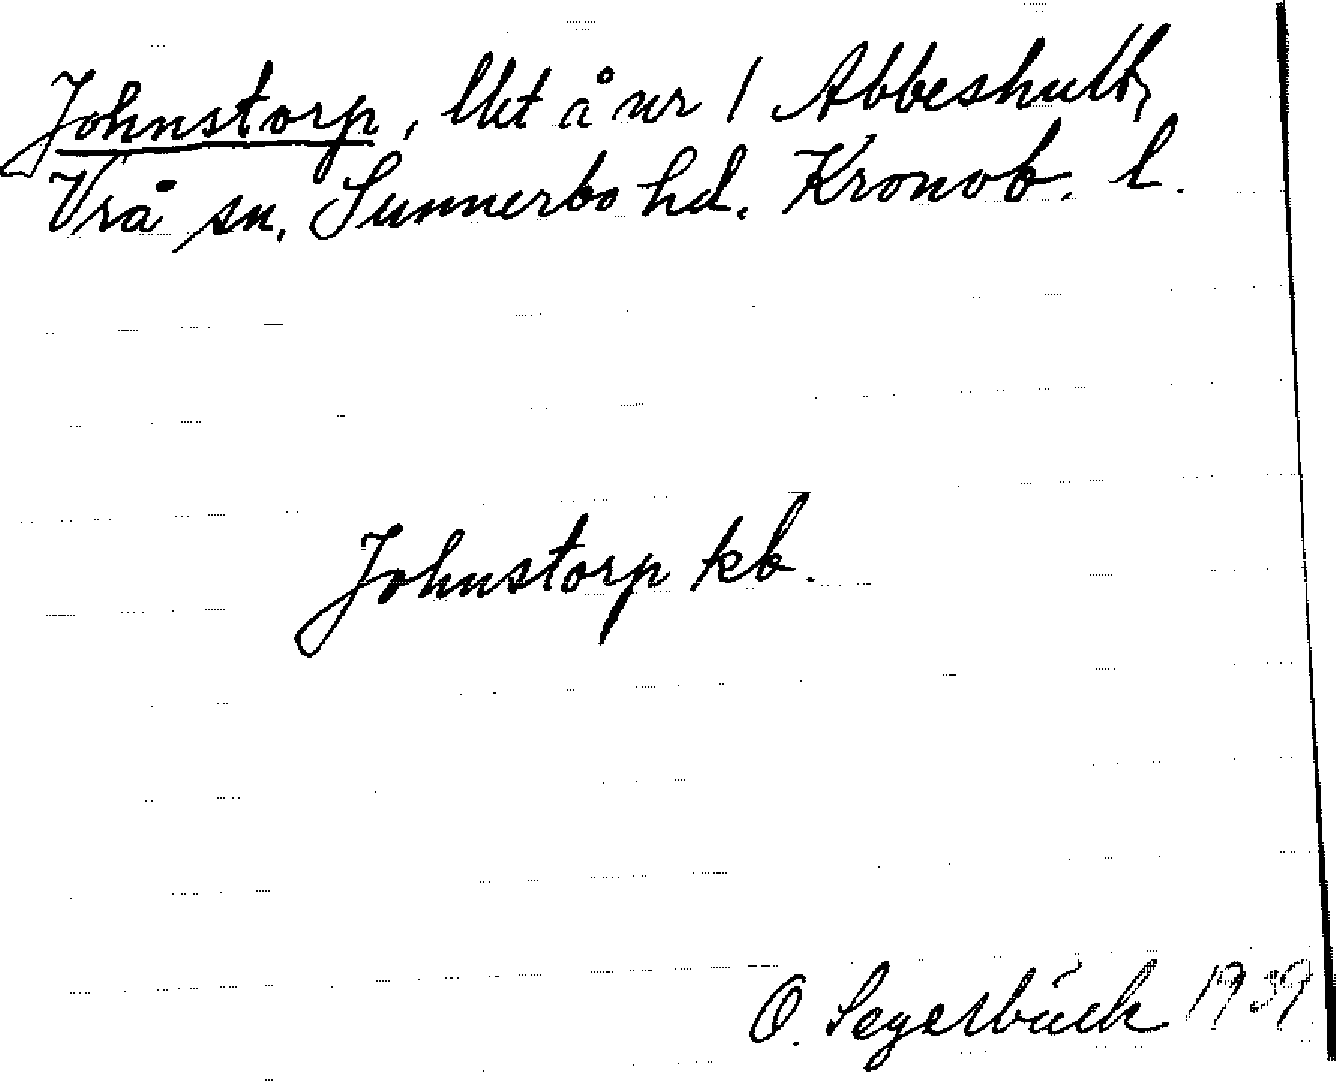 Johnstorp, lht å nr 1 Abbeshult,
Vrå sn. Sunnerbo hd. Kronob. l.
Johnstorp kb.
O. Segerbäck 1939